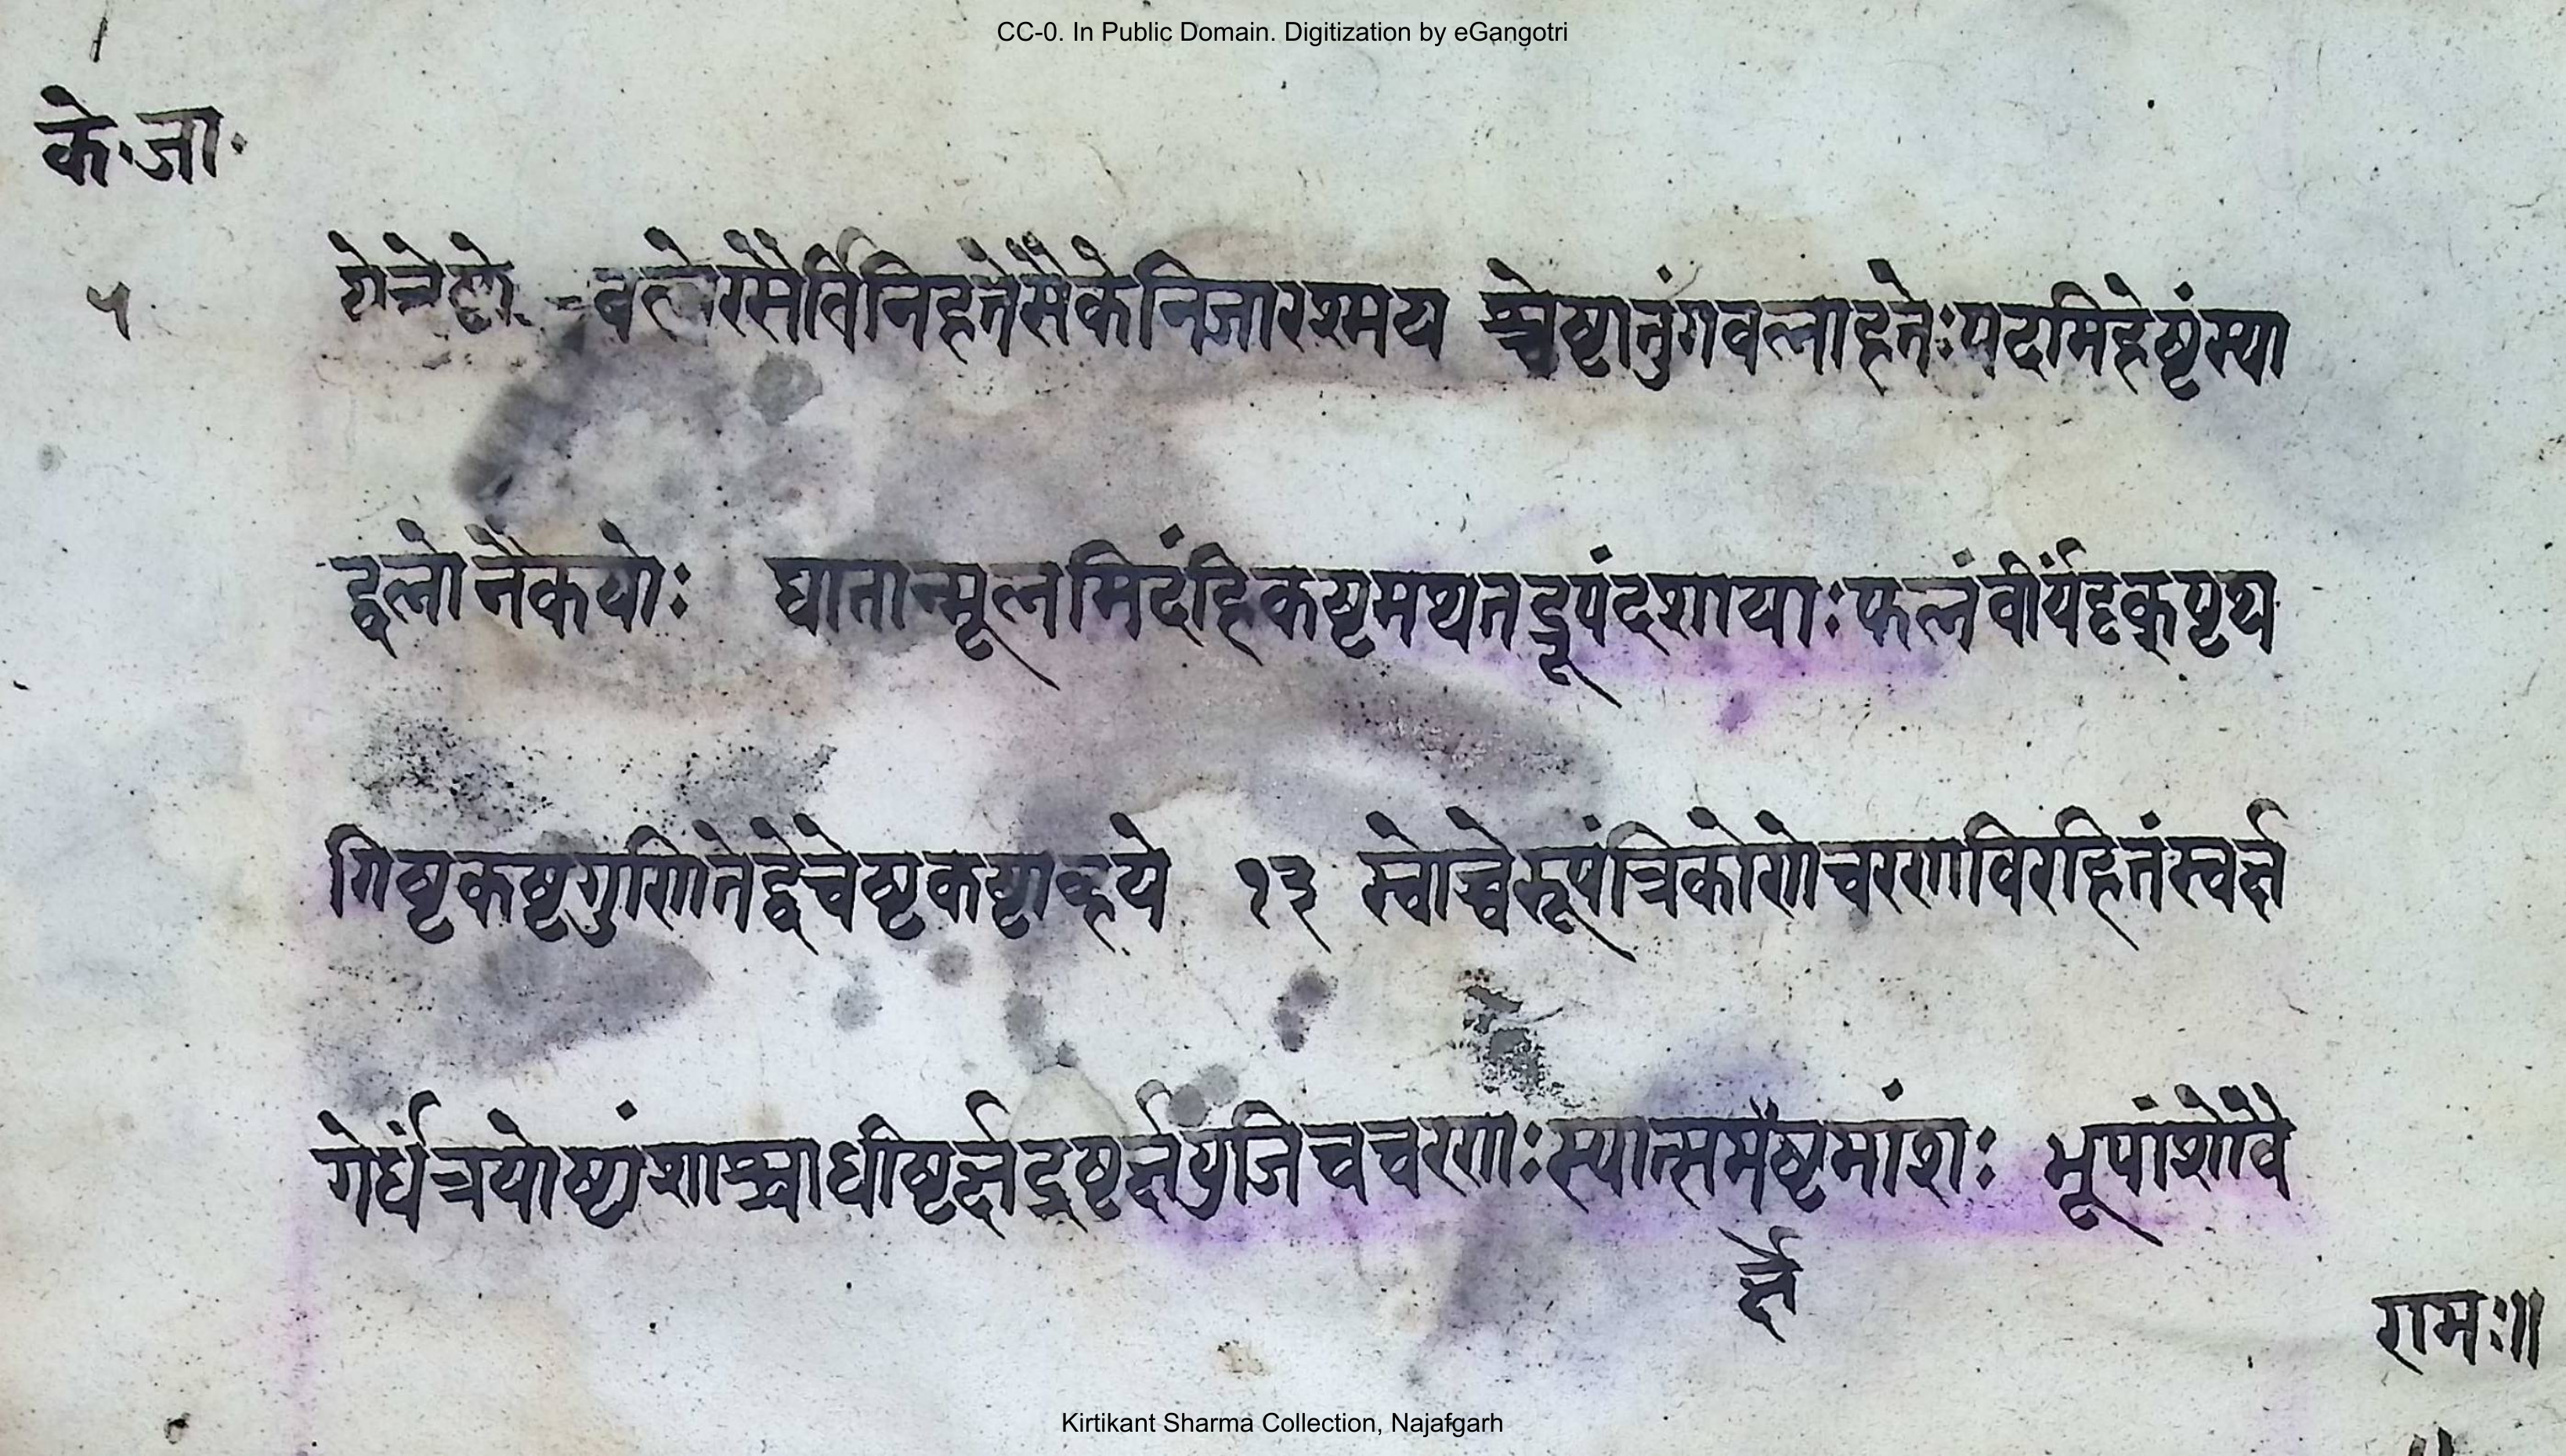 CC-0. In Public Domain. Digitization by eGangotri
के·जा·
५
बलेरसैर्विनिहतेसैकेनिजारश्मय श्चेष्टातुंगबलाहतेःपदमिहेष्टंस्या
द्बलोनैकयोः घातान्मूलमिदंहिकष्टमथतद्रूपंदशायाःफलंवीर्यदृक्पृथ
गिष्टकष्टगुणितेद्वेचेष्टकष्टाव्हये १३ स्वोच्चेरूपंत्रिकोणेचरणविरहितंस्वर्क्ष
गेर्धंत्रयोष्टांशाश्चाधीष्टर्क्षद्रष्टर्क्षयुजिचचरणःस्यात्समेष्टमांशः भूपांशोवै
र्क्षे
रामः॥
Kirtikant Sharma Collection, Najafgarh